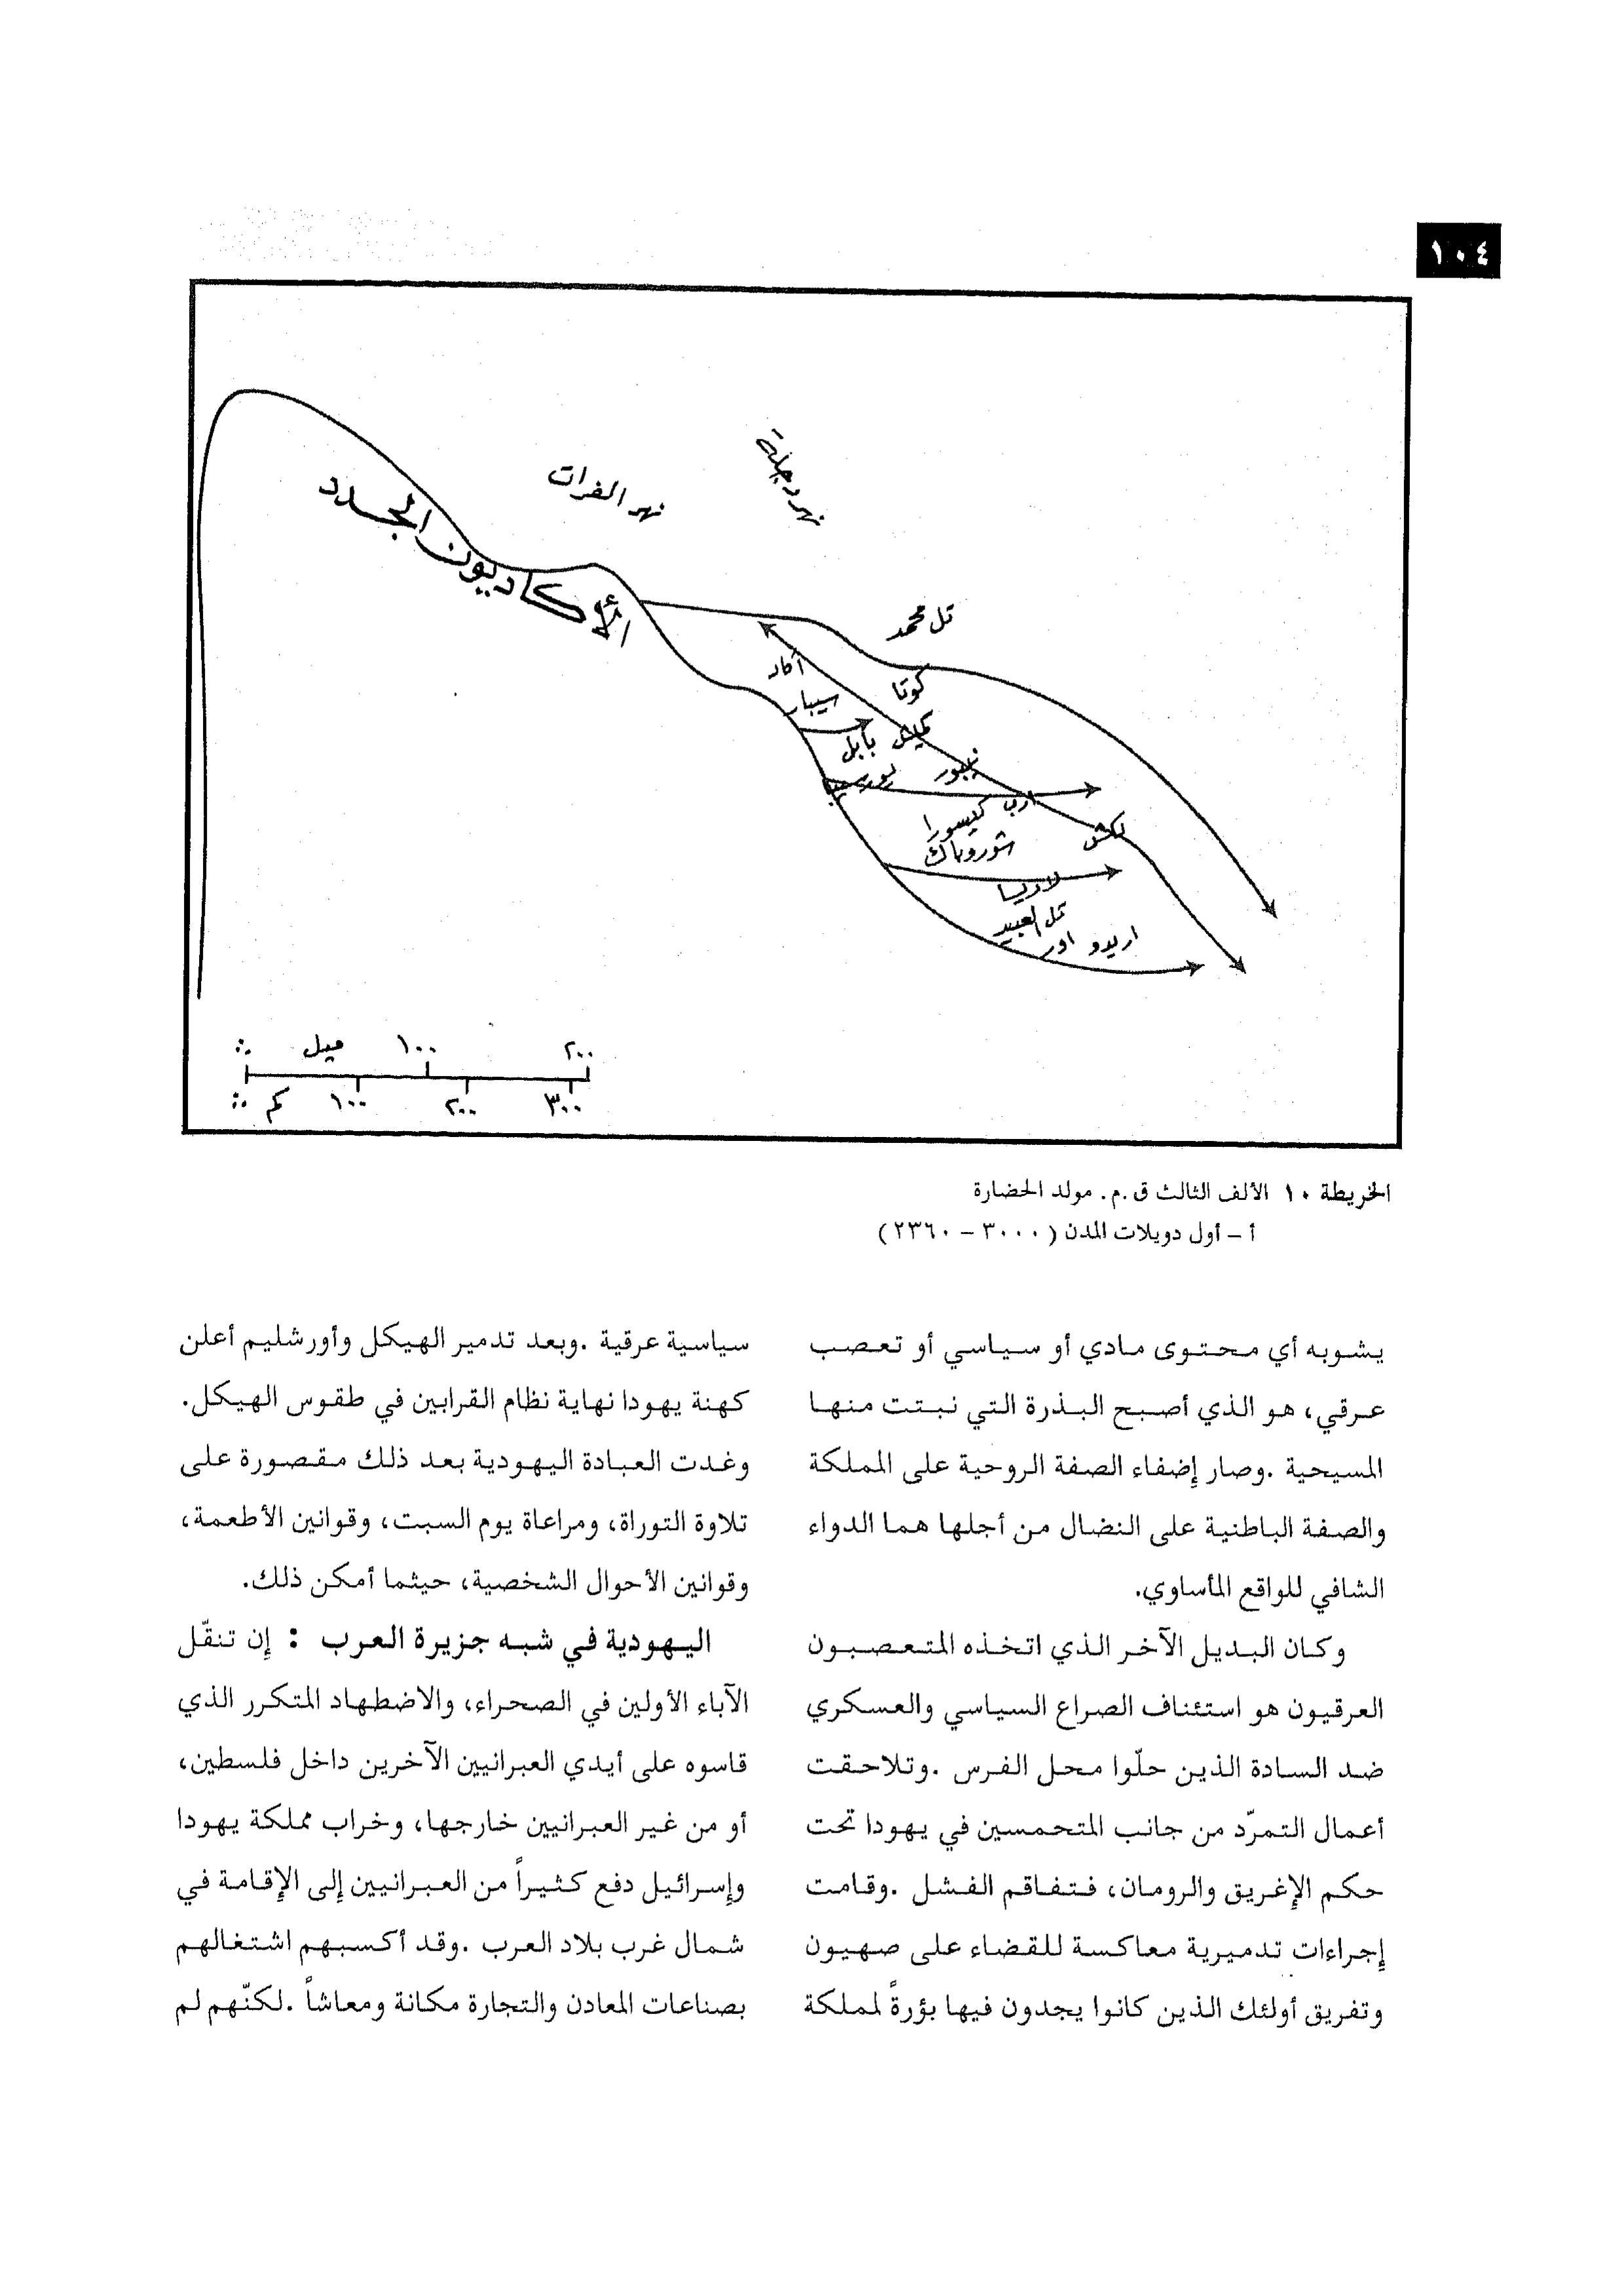 ١٠٤
نهر دجلة
نهر الفرات
الأكاديون الجدد
تل محمد
أكاد
كوتا
سيبار
كيش
بابل
نيبور
بورسيبا
ارب
كيسورا
لكش
شوروباك
لارسا
تل العبيد
اريدو اور
ميل ١٠٠ ٢٠٠
كم ١٠٠ ٢٠٠ ٣٠٠
الخريطة ١٠ الألف الثالث ق.م. مولد الحضارة
أ – أول دويلات المدن (٣٠٠٠ – ٢٣٦٠)
يشوبه أي محتوى مادي أو سياسي أو تعصب
عرقي، هو الذي أصبح البذرة التي نبتت منها
المسيحية .وصار إضفاء الصفة الروحية على المملكة
والصفة الباطنية على النضال من أجلها هما الدواء
الشافي للواقع المأساوي.
وكان البديل الآخر الذي اتخذه المتعصبون
العرقيون هو استئناف الصراع السياسي والعسكري
ضد السادة الذين حلّوا محل الفرس .وتلاحقت
أعمال التمرّد من جانب المتحمسين في يهودا تحت
حكم الإغريق والرومان، فتفاقم الفشل .وقامت
إجراءات تدميرية معاكسة للقضاء على صهيون
وتفريق أولئك الذين كانوا يجدون فيها بؤرةً لمملكة
سياسية عرقية .وبعد تدمير الهيكل وأورشليم أعلن
كهنة يهودا نهاية نظام القرابين في طقوس الهيكل.
وغدت العبادة اليهودية بعد ذلك مقصورة على
تلاوة التوراة، ومراعاة يوم السبت، وقوانين الأطعمة،
وقوانين الأحوال الشخصية، حيثما أمكن ذلك.
اليهودية في شبه جزيرة العرب : إن تنقّل
الآباء الأولين في الصحراء، والاضطهاد المتكرر الذي
قاسوه على أيدي العبرانيين الآخرين داخل فلسطين،
أو من غير العبرانيين خارجها، وخراب مملكة يهودا
وإسرائيل دفع كثيراً من العبرانيين إلى الإقامة في
شمال غرب بلاد العرب .وقد أكسبهم اشتغالهم
بصناعات المعادن والتجارة مكانة ومعاشاً .لكنّهم لم